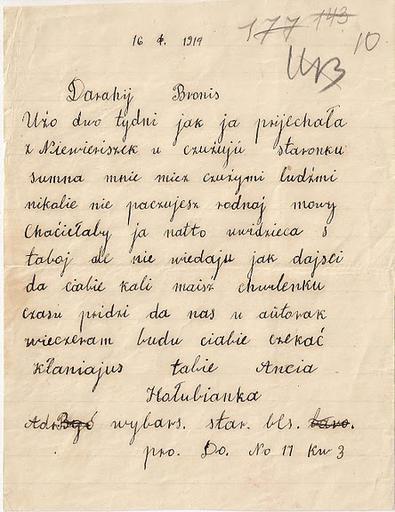 177 143
10
16 4. 1919
Darahij Bronis
Użo dwo tydni jak ja prijechała
z Niewieriszek u czużuju staronku
sumna mnie miez czużymi ludźmi
nikolie nie paczujesz rodnaj mowy
Chaciełaby ja natto uwidzieca s
taboj ale nie wiedaju jak dajsci
da ciabie kali maisz chwilenku
czasu pridzi da nas u aŭtorak
wieczeram budu ciabie czekać
Kłaniajus tabie Ancia
Hołubianka
Adr. wybars. star. bls.
pro. Do. No 17 kw 3